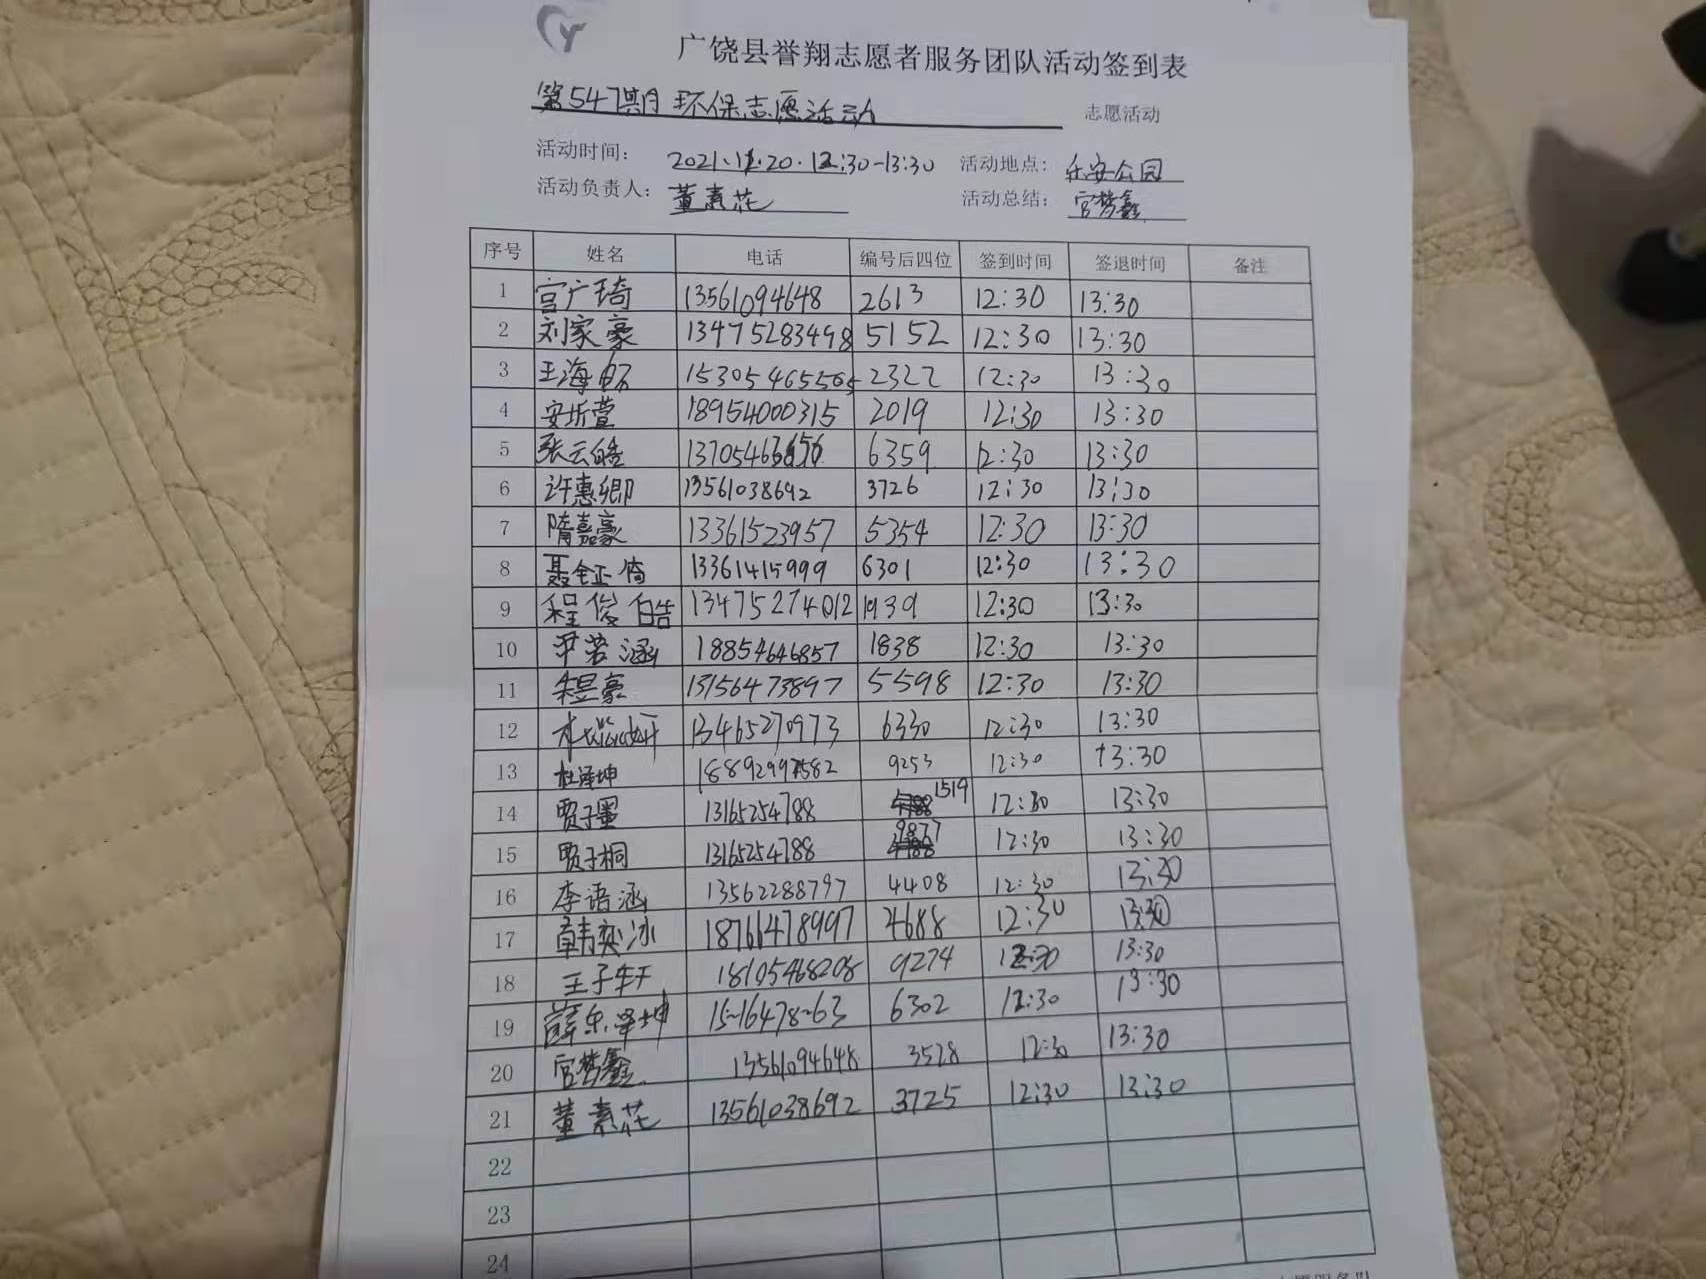 广饶县誉翔志愿者服务团队活动签到表
第547期环保志愿活动 志愿活动
活动时间： 2021.11.20.12:30-13:30 活动地点： 乐安公园
活动负责人： 董素花 活动总结： 宫梦鑫
序号 姓名 电话 编号后四位 签到时间 签退时间 备注
1 宫广琦 13561094648 2613 12:30 13:30
2 刘家豪 13475283498 5152 12:30 13:30
3 王海 15305465565 2322 12:30 13:30
4 安圻萱 18954000315 2019 12:30 13:30
5 张云皓 6359 12:30 13:30
6 许惠卿 13561038692 3726 12:30 13:30
7 隋嘉豪 13361523957 5354 12:30 13:30
8 聂钲倚 13361415999 6301 12:30 13:30
9 程俊皓 13475274012 1939 12:30 13:30
10 尹若涵 18854646857 1838 12:30 13:30
11 朱昱豪 13156473897 5598 12:30 13:30
12 13465270973 6330 12:30 13:30
13 杜泽坤 18892997582 9253 12:30 13:30
14 贾子墨 13165254788 1519 12:30 13:30
15 贾子桐 13165254788 9877 12:30 13:30
16 李语涵 13562288797 4408 12:30 13:30
17 韩奕冰 18766478997 4688 12:30 13:30
18 王子轩 18105468208 9274 12:30 13:30
19 薛乐泽坤 6302 12:30 13:30
20 宫梦鑫 13561094648 3528 12:30 13:30
21 董素花 13561038692 3725 12:30 13:30
22
23
24